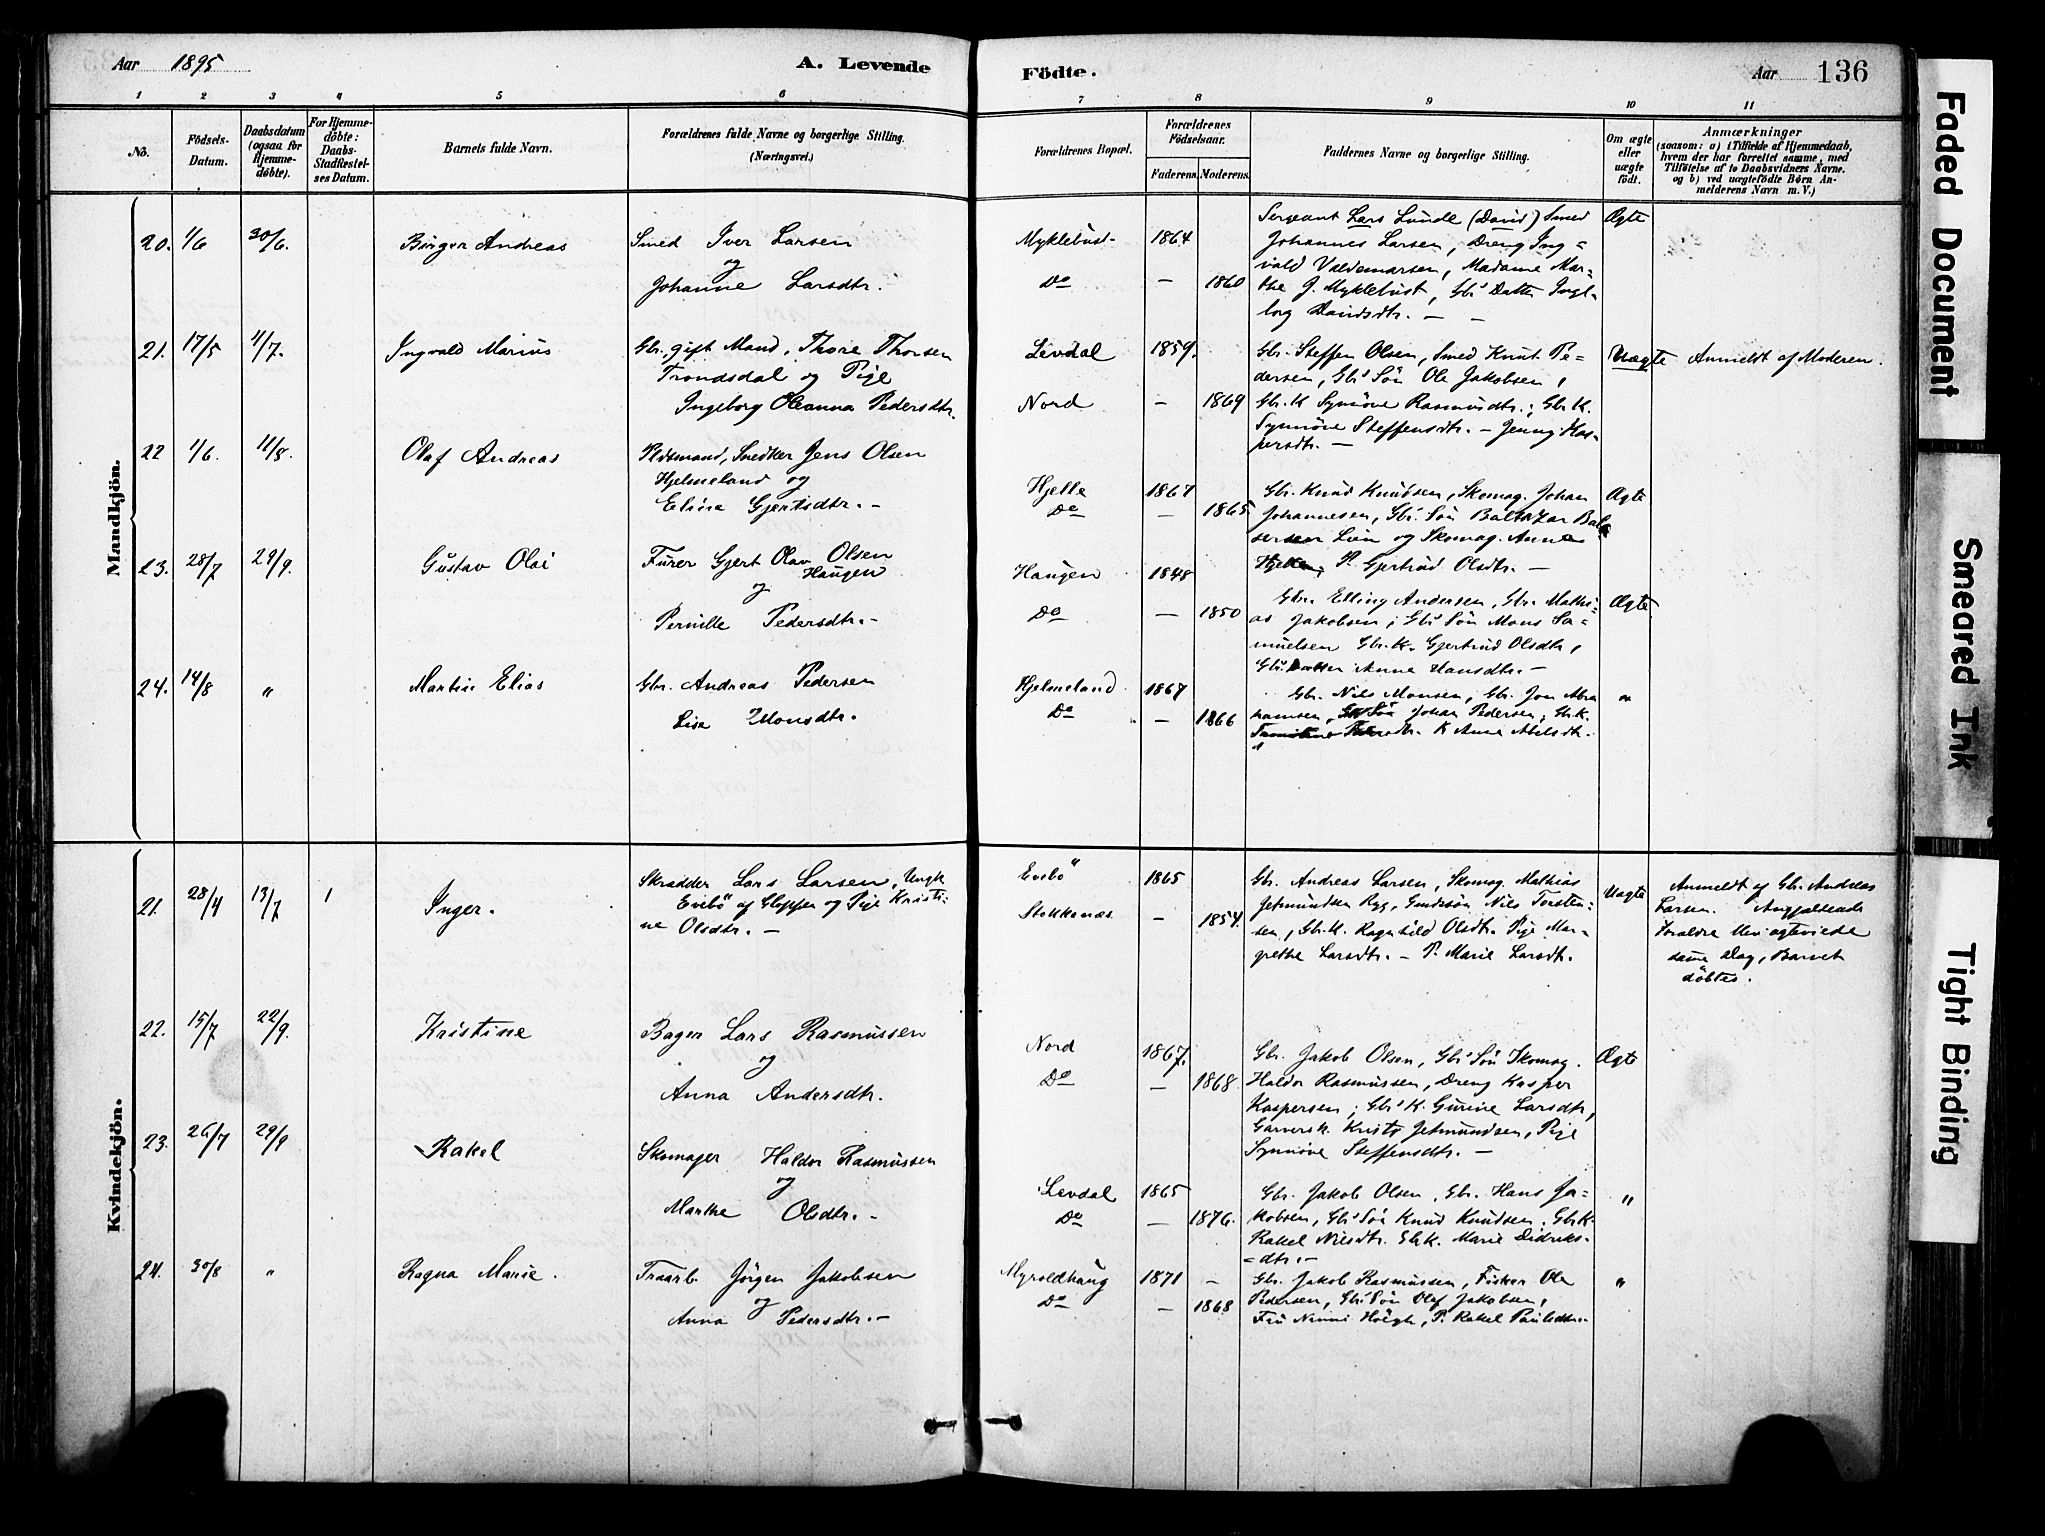 Aar 1895
A. Levende
Födte.
Aar
136
1 2 3 4 5 6 7 8 9 10 11
No.
Födsels-Datum.
Daabsdatum (ogsaa for Hjemme-döbte).
For Hjemme-döbte: Daabs-Stadfæstel-ses Datum.
Barnets fulde Navn.
Forældrenes fulde Navne og borgerlige Stilling.
(Næringsvei.)
Forældrenes Bopæl.
Forældrenes Födselsaar.
Faderens. Moderens.
Faddernes Navne og borgerlige Stilling.
Om ægte eller uægte födt.
Anmærkninger
(saasom: a) i Tilfælde af Hjemmedaab,
hvem der har forrettet samme, med
Tilföielse af to Daabsvidners Navne.
og b) ved uægtefödte Börn An-
melderens Navn m. V.)
Mandkjön.
20. 1/6 30/6. Birger Andreas Smed Iver Larsen
og
Johanne Larsdtr.
Myklebust 1864
Do — 1860
Sergeant Lars Lunde (David) Smed
Johannes Larsen, Dreng Ing-
vald Valdemarsen, Madame Mar-
the J. Myklebust, Gbr's Datter Inge-
borg Davidsdtr. —
Ægte
21. 17/5 11/7. Ingvald Marius Gbr., gift Mand, Thore Thorsen
Trondsdal og Pige
Ingeborg Oleanna Pedersdtr.
Levdal 1859.
Nord — 1869
Gbr. Steffen Olsen, Smed Knut Pe-
dersen, Gbr's Sön Ole Jakobsen,
Gbr. K Synnöve Rasmusdtr., Gbr. K.
Synnöve Steffensdtr. — Jenny Kas-
persdtr. —
Uægte Anmeldt af Moderen.
22 1/6. 11/8. Olaf Andreas Pldsmand, Snedker Jens Olsen
Hjelmeland og
Elina Gjertsdtr. —
Hjelle 1867
Do — 1865
Gbr. Knud Knudsen, Skomag. Johan
Johannesen, Gbr's Sön Baltazar Bal
sersen Lien og Skomag. Anne
Hjelle, P. Gjertrud Olsdtr. —
Ægte
23. 28/7 29/9. Gustav Olai Furer Gjert Olav Olsen
Haugen
og
Pernille Pedersdtr. —
Haugen 1848
Do — 1850
Gbr. Elling Andersen, Gbr. Mathi-
as Jakobsen, Gbr's Sön Mons Sa-
muelsen Gbr. K. Gjertrud Olsdtr,
Gbr's Datter Anne Hansdtr. —
Ægte
24. 14/8 " Martin Elias Gbr. Andreas Pedersen
Lisa Monsdtr.
Hjelmeland 1867
Do — 1866
Gbr. Nils Monsen, Gbr. Jon Abra
hamsen, Gbr Sön Johan Pedersen, Gbr. K.
Pedersdtr. K Anne Abelsdtr.
"
Kvindekjön.
21. 28/4 13/7 1 Inger. Skrædder Lars Larsen, Ungk
Evebö af Gloppen og Pige Kristi-
ne Olsdtr. —
Evebö 1865
Stokkenæs — 1854.
Gbr. Andreas Larsen, Skomag. Mathias
Jetmundsen Ryg, Gaardsön Nils Torsten-
sen, Gbr. K. Ragnhild Olsdtr. Pige Mar-
grethe Larsdtr. — P. Marie Larsdtr.
Uægte
Anmeldt af Gbr. Andreas
Larsen. Angjældende
Foraldre blev ægteviede
samme Dag, Barnet
döbtes.
22. 15/7 22/9. Kristine Bager Lars Rasmussen
og
Anna Andersdtr.
Nord 1867.
Do — 1868
Gbr. Jakob Olsen, Gbr's Sön Skomag.
Haldor Rasmussen, Dreng Kasper
Kaspersen, Gbr's K. Gurine Larsdtr,
Garversk. Kristi Jetmundsen, Pige
Synnöve Steffensdtr. —
Ægte
23. 26/7 29/9 Rakel Skomager Haldor Rasmussen
og
Marthe Olsdtr. —
Levdal 1865
Do — 1876.
Gbr. Jakob Olsen, Gbr. Hans Ja-
kobsen, Gbr's Sön Knud Knudsen, Gbr. K
Rakel Nilsdtr. Gbr K. Marie Didriks-
-dtr. —
"
24. 30/8 " Ragna Marie. Traarb. Jörgen Jakobsen
og
Anna Pedersdtr. —
Myroldhaug 1871 —
Do — 1868
Gbr. Jakob Rasmussen, Fisker Ole
Pedersen, Gbr's Sön Olaf Jakobsen,
Fru Ninni Höegh, P. Rakel Paulsdtr.
"
Faded Document
Smeared Ink
Tight Binding